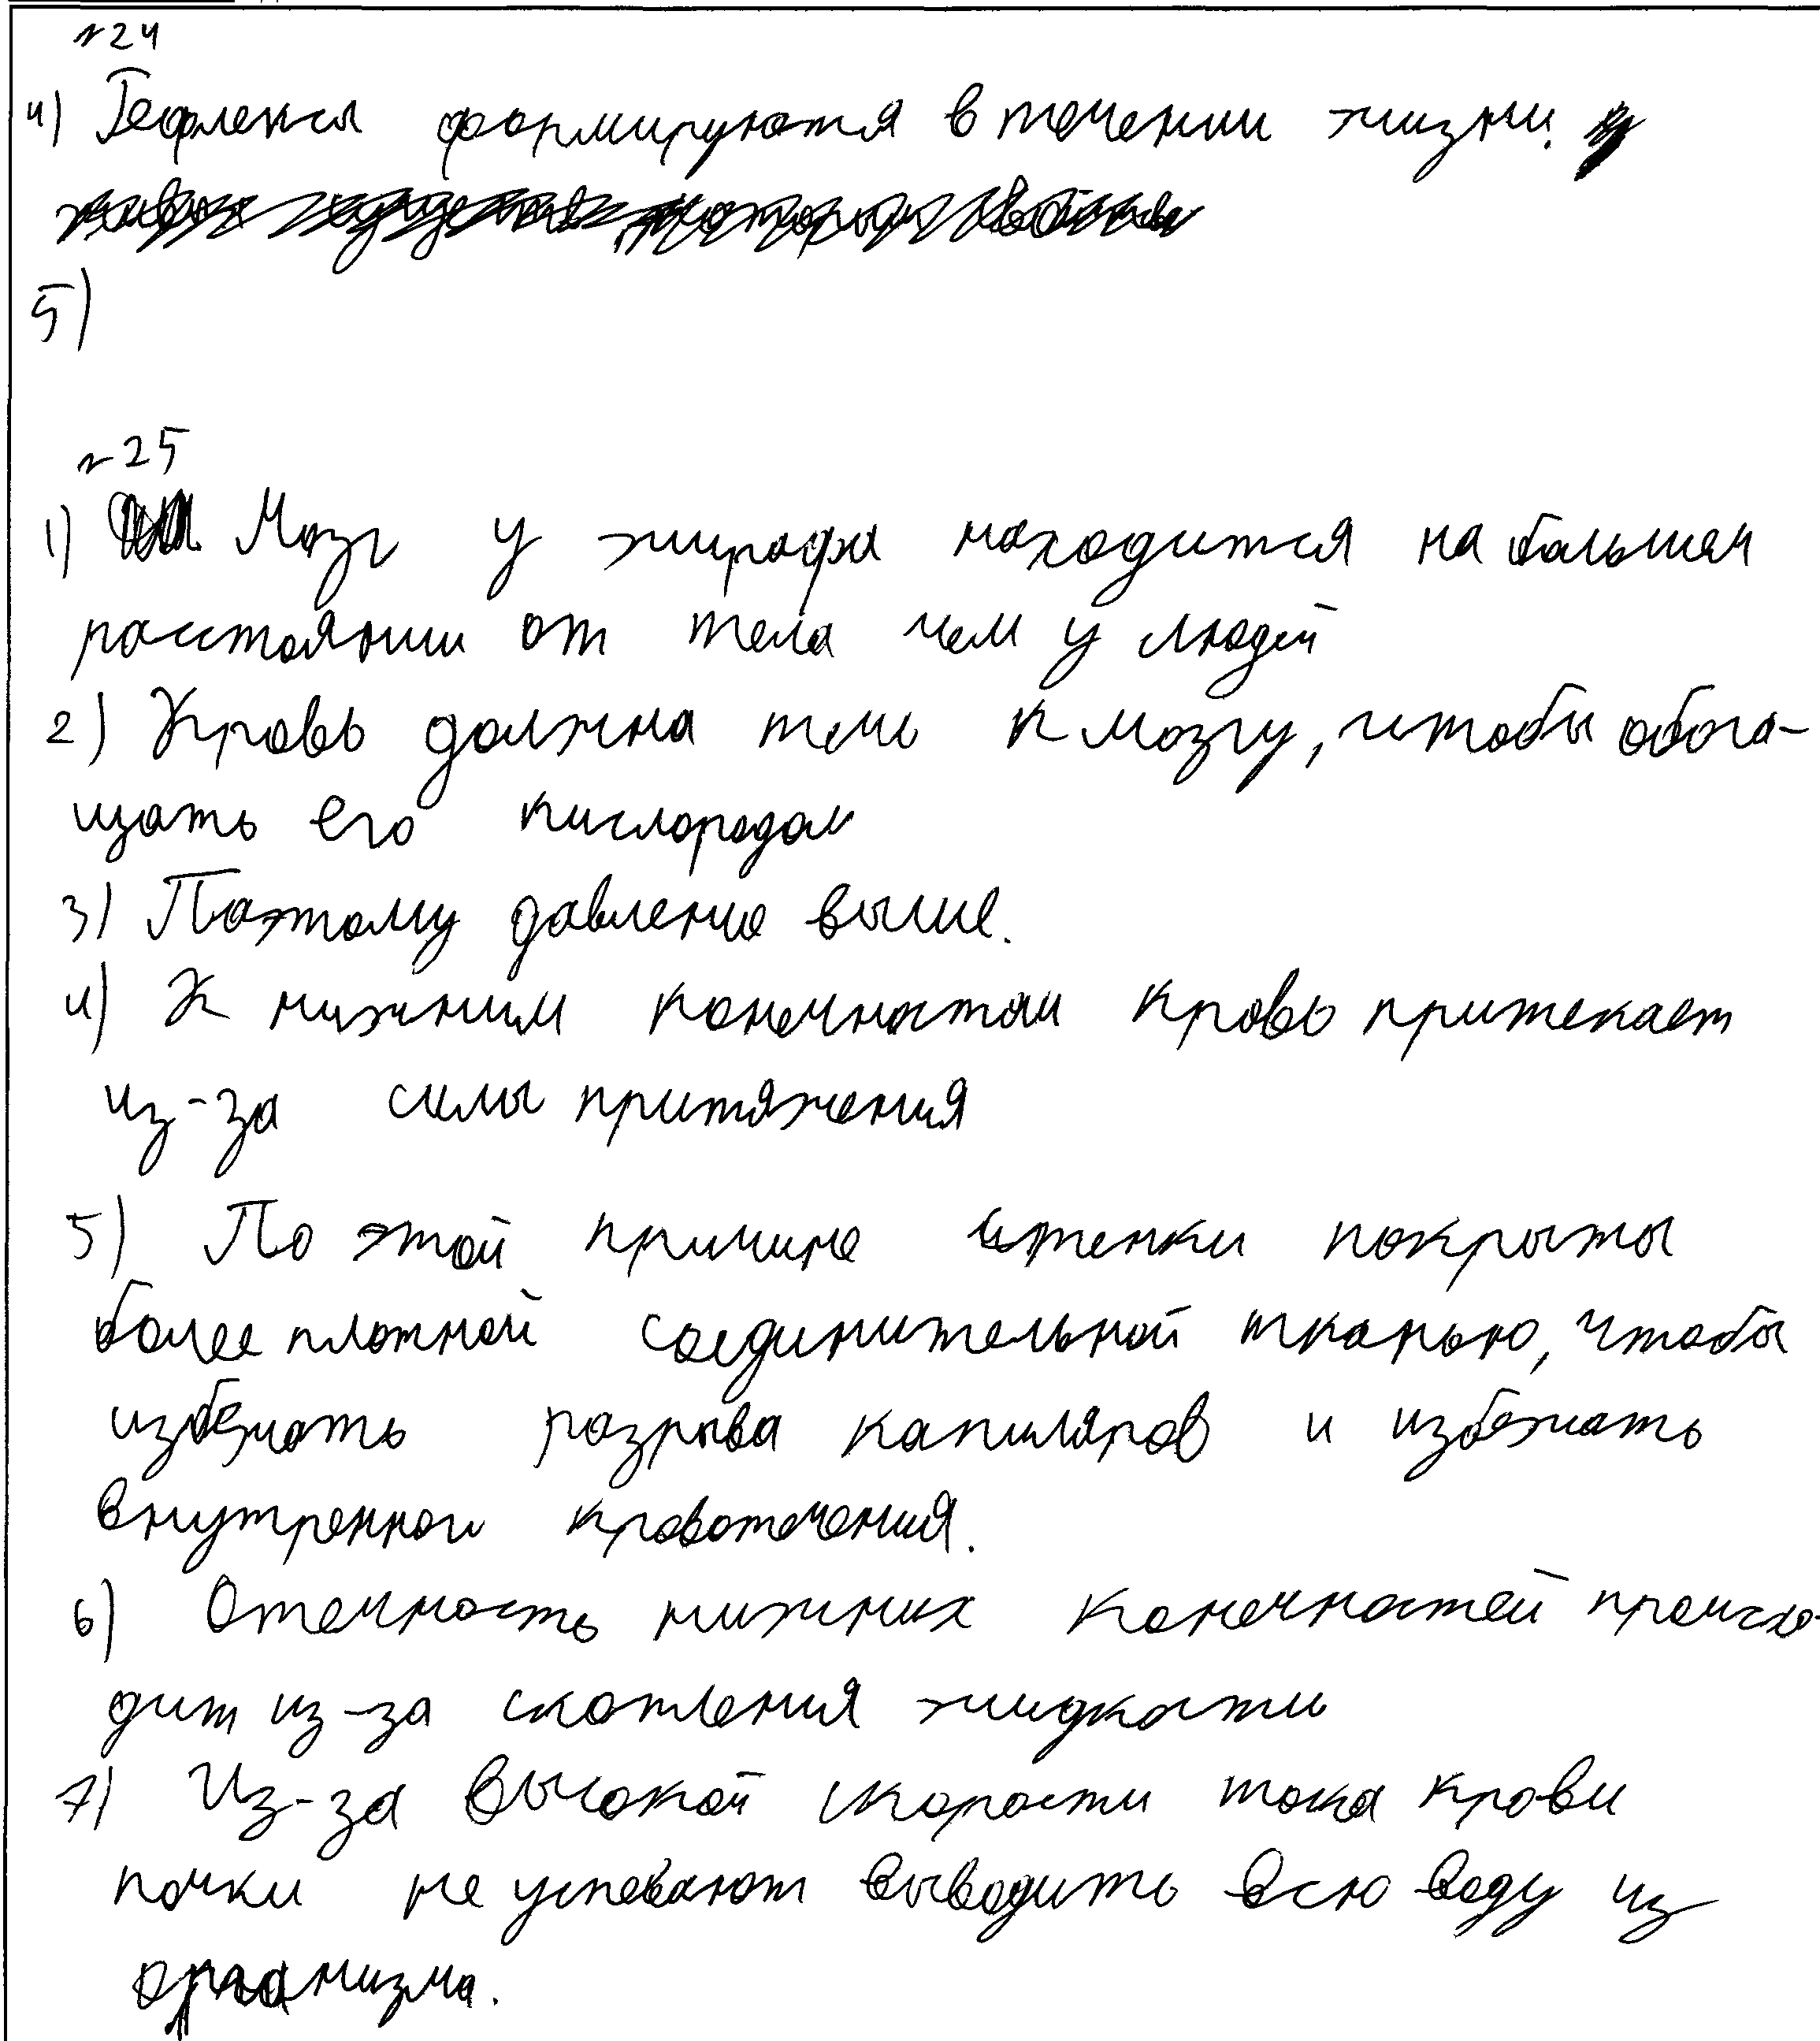 №24
4) Рефлексы формируются в течении жизни.
5)
№25
1) Мозг у жирафа находится на большем
расстоянии от тела чем у людей
2) Кровь должна течь к мозгу, чтобы обога-
щать его кислородом
3) Поэтому давление выше.
4) К нижним конечностям кровь притекает
из-за силы притяжения
5) По этой причине стенки покрыты
более плотной соединительной тканью, чтобы
избежать разрыва капиляров и избежать
внутренной кровотечения.
6) Отечность нижних конечностей происхо-
дит из-за скопления жидкости
7) Из-за высокой скорости тока крови
почки не успевают выводить всю воду из
организма.